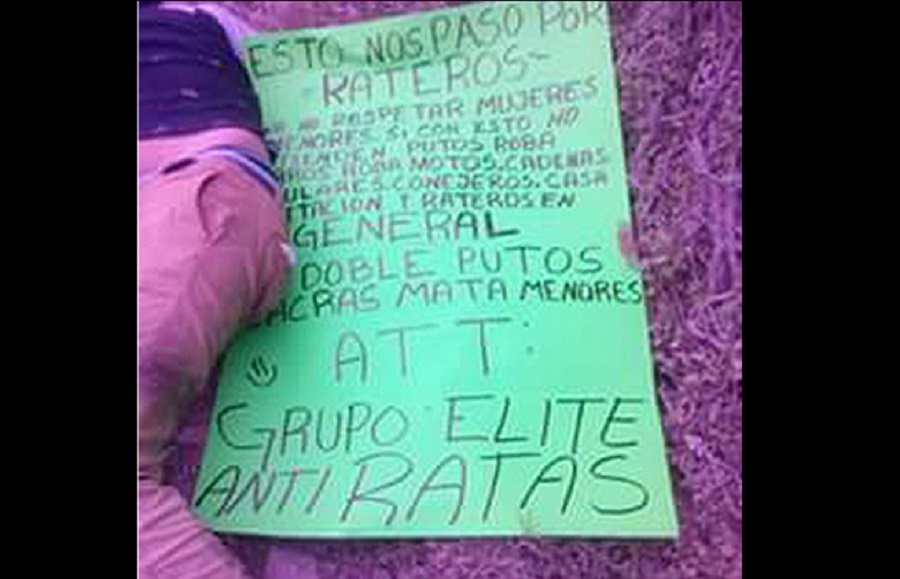 ESTO NOS PASO POR
RATEROS-
NO RESPETAR MUJERES
MENORES SI CON ESTO NO
PUTOS ROBA
ROBA MOTOS. CADENAS
CONEJEROS. CASA
Y RATEROS EN
GENERAL
DOBLE PUTOS
MATA MENORES
ATT:
GRUPO ELITE
ANTI RATAS